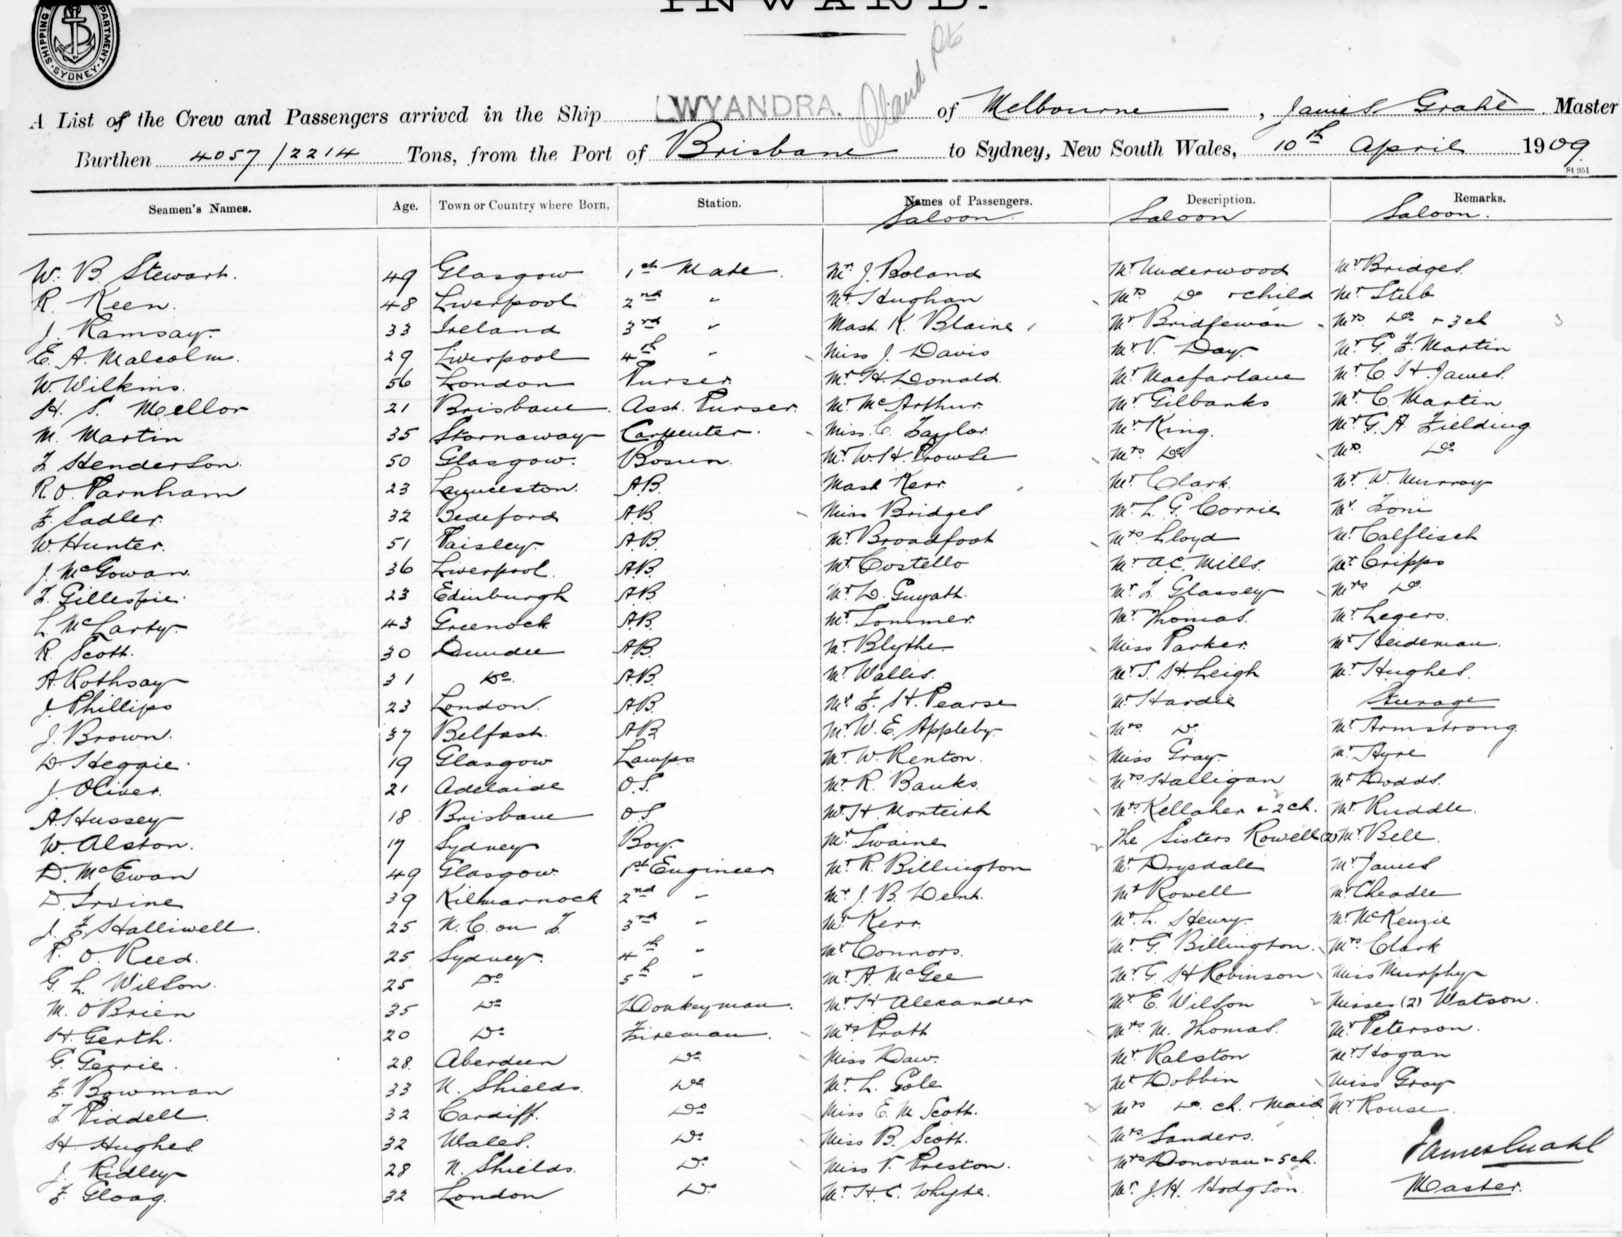 INWARD.
SHIPPING DEPARTMENT SYDNEY
A List of the Crew and Passengers arrived in the Ship WYANDRA. of Melbourne, James Grahl Master
Burthen 4057/2214 Tons, from the Port of Brisbane to Sydney, New South Wales, 10th April 1909
St 951
Seamen's Names. Age. Town or Country where Born, Station. Names of Passengers. Description. Remarks.
Saloon Saloon Saloon.
W. B. Stewart. 49 Glasgow 1st Mate. Mr J. Boland Mr Underwood Mr Bridges.
R. Keen. 48 Liverpool 2nd " Mr Hughan Mrs Do + child Mr Stub
J. Ramsay. 33 Ireland 3rd " Mast. K. Blaine Mr Bridgewan Mrs Do + 3 ch
E. A. Malcolm. 29 Liverpool 4th " Miss J. Davis Mr V. Day. Mr G. F. Martin
W. Wilkins. 56 London Purser. Mr H. Donald. Mr Macfarlane Mr C. H. James.
H. S. Mellor 21 Brisbane. Asst. Purser. Mr McArthur. Mr Gilbanks Mr C. Martin
M. Martin 35 Stornaway Carpenter. Miss C. Taylor. Mr King. Mr G. A. Fielding
F. Henderson. 50 Glasgow. Bosun. Mr W. H. Prowse Mrs Do Mrs Do.
R. O. Parnham 23 Launceston. A.B. Mast Kerr Mr Clark. Mr W. Murray
F. Sadler. 32 Bedeford A.B. Miss Bridges Mr L. G. Corrie Mr Toni
W. Hunter. 51 Paisley. A.B. Mr Broadfoot Mrs Lloyd Mr Calflisch
J. McGowan. 36 Liverpool. A.B. Mr Costello Mr A.C. Mills. Mr Cripps
F. Gillespie. 23 Edinburgh A.B. Mr D. Guyatt. Mr F. Glassey Mrs Do.
L. McCarty. 43 Greenock A.B. Mr Sommer. Mr Thomas. Mr Legers.
R. Scott. 30 Dundee A.B. Mr Blythe Miss Parker. Mr Heideman.
A Rothsay 31 Do. A.B. Mr Wallis. Mr S. H. Leigh Mr Hughes.
J. Phillips 23 London. A.B. Mr F. H. Pearse Mr Hardie Steerage
J. Brown. 37 Belfast. A.B. Mr W. E. Appleby. Mrs Do Mr Armstrong
D Heggie. 19 Glasgow Lamps Mr W. Renton. Miss Gray. Mr Ayre
J. Oliver. 21 Adelaide O.S. Mr R. Banks. Mrs Halligan Mr Dodds.
A. Hussey 18 Brisbane O.S Mr H. Monteith Mrs Kellaher + 2 ch. Mr Ruddle.
W. Alston. 17 Sydney Boy. Mr Swaine The Sisters Rowell (2) Mr Bell.
D. McEwan 49 Glasgow. 1st Engineer Mr R. Billington Mr Drysdale Mr James
D. Irvine 39 Kilmarnock 2nd " Mr J. B. Dent. Mr Rowell Mr Cheadle
J. F. Halliwell. 25 N.C. on T 3rd " Mr Kerr. Mr L. Henry. Mr McKenzie
R. O. Reed. 25 Sydney. 4th " Mr Connors. Mr G. Billington. Mrs Clark
G. L. Wilson. 25 Do 5th " Mr A. McGee Mr G. H. Robinson Miss Murphy
M. O'Brien 35 Do Donkeyman. Mr H. Alexander Mr E. Wilson Misses (2) Watson.
H. Gerth. 20 Do Fireman. Mrs Pratt Mrs M. Thomas. Mr Peterson.
G. Gerrie. 28. Aberdeen Do Miss Daw. Mr Ralston Mr Hogan
F. Bowman 33 N. Shields. Do Mr L. Gole Mr Dobbin Miss Gray
F. Piddell. 32 Cardiff. Do Miss E. M. Scott. Mrs Do. ch. + Maid Mr Rouse.
H. Hughes. 32 Wales. Do Miss B. Scott. Mrs Sanders.
J. Ridley 28 N. Shields. Do Miss V. Preston. Mrs Donovan + 5 ch. James Grahl
F. Gloag. 32 London Do Mr H. C. Whyte. Mr J. H. Hodgson. Master.